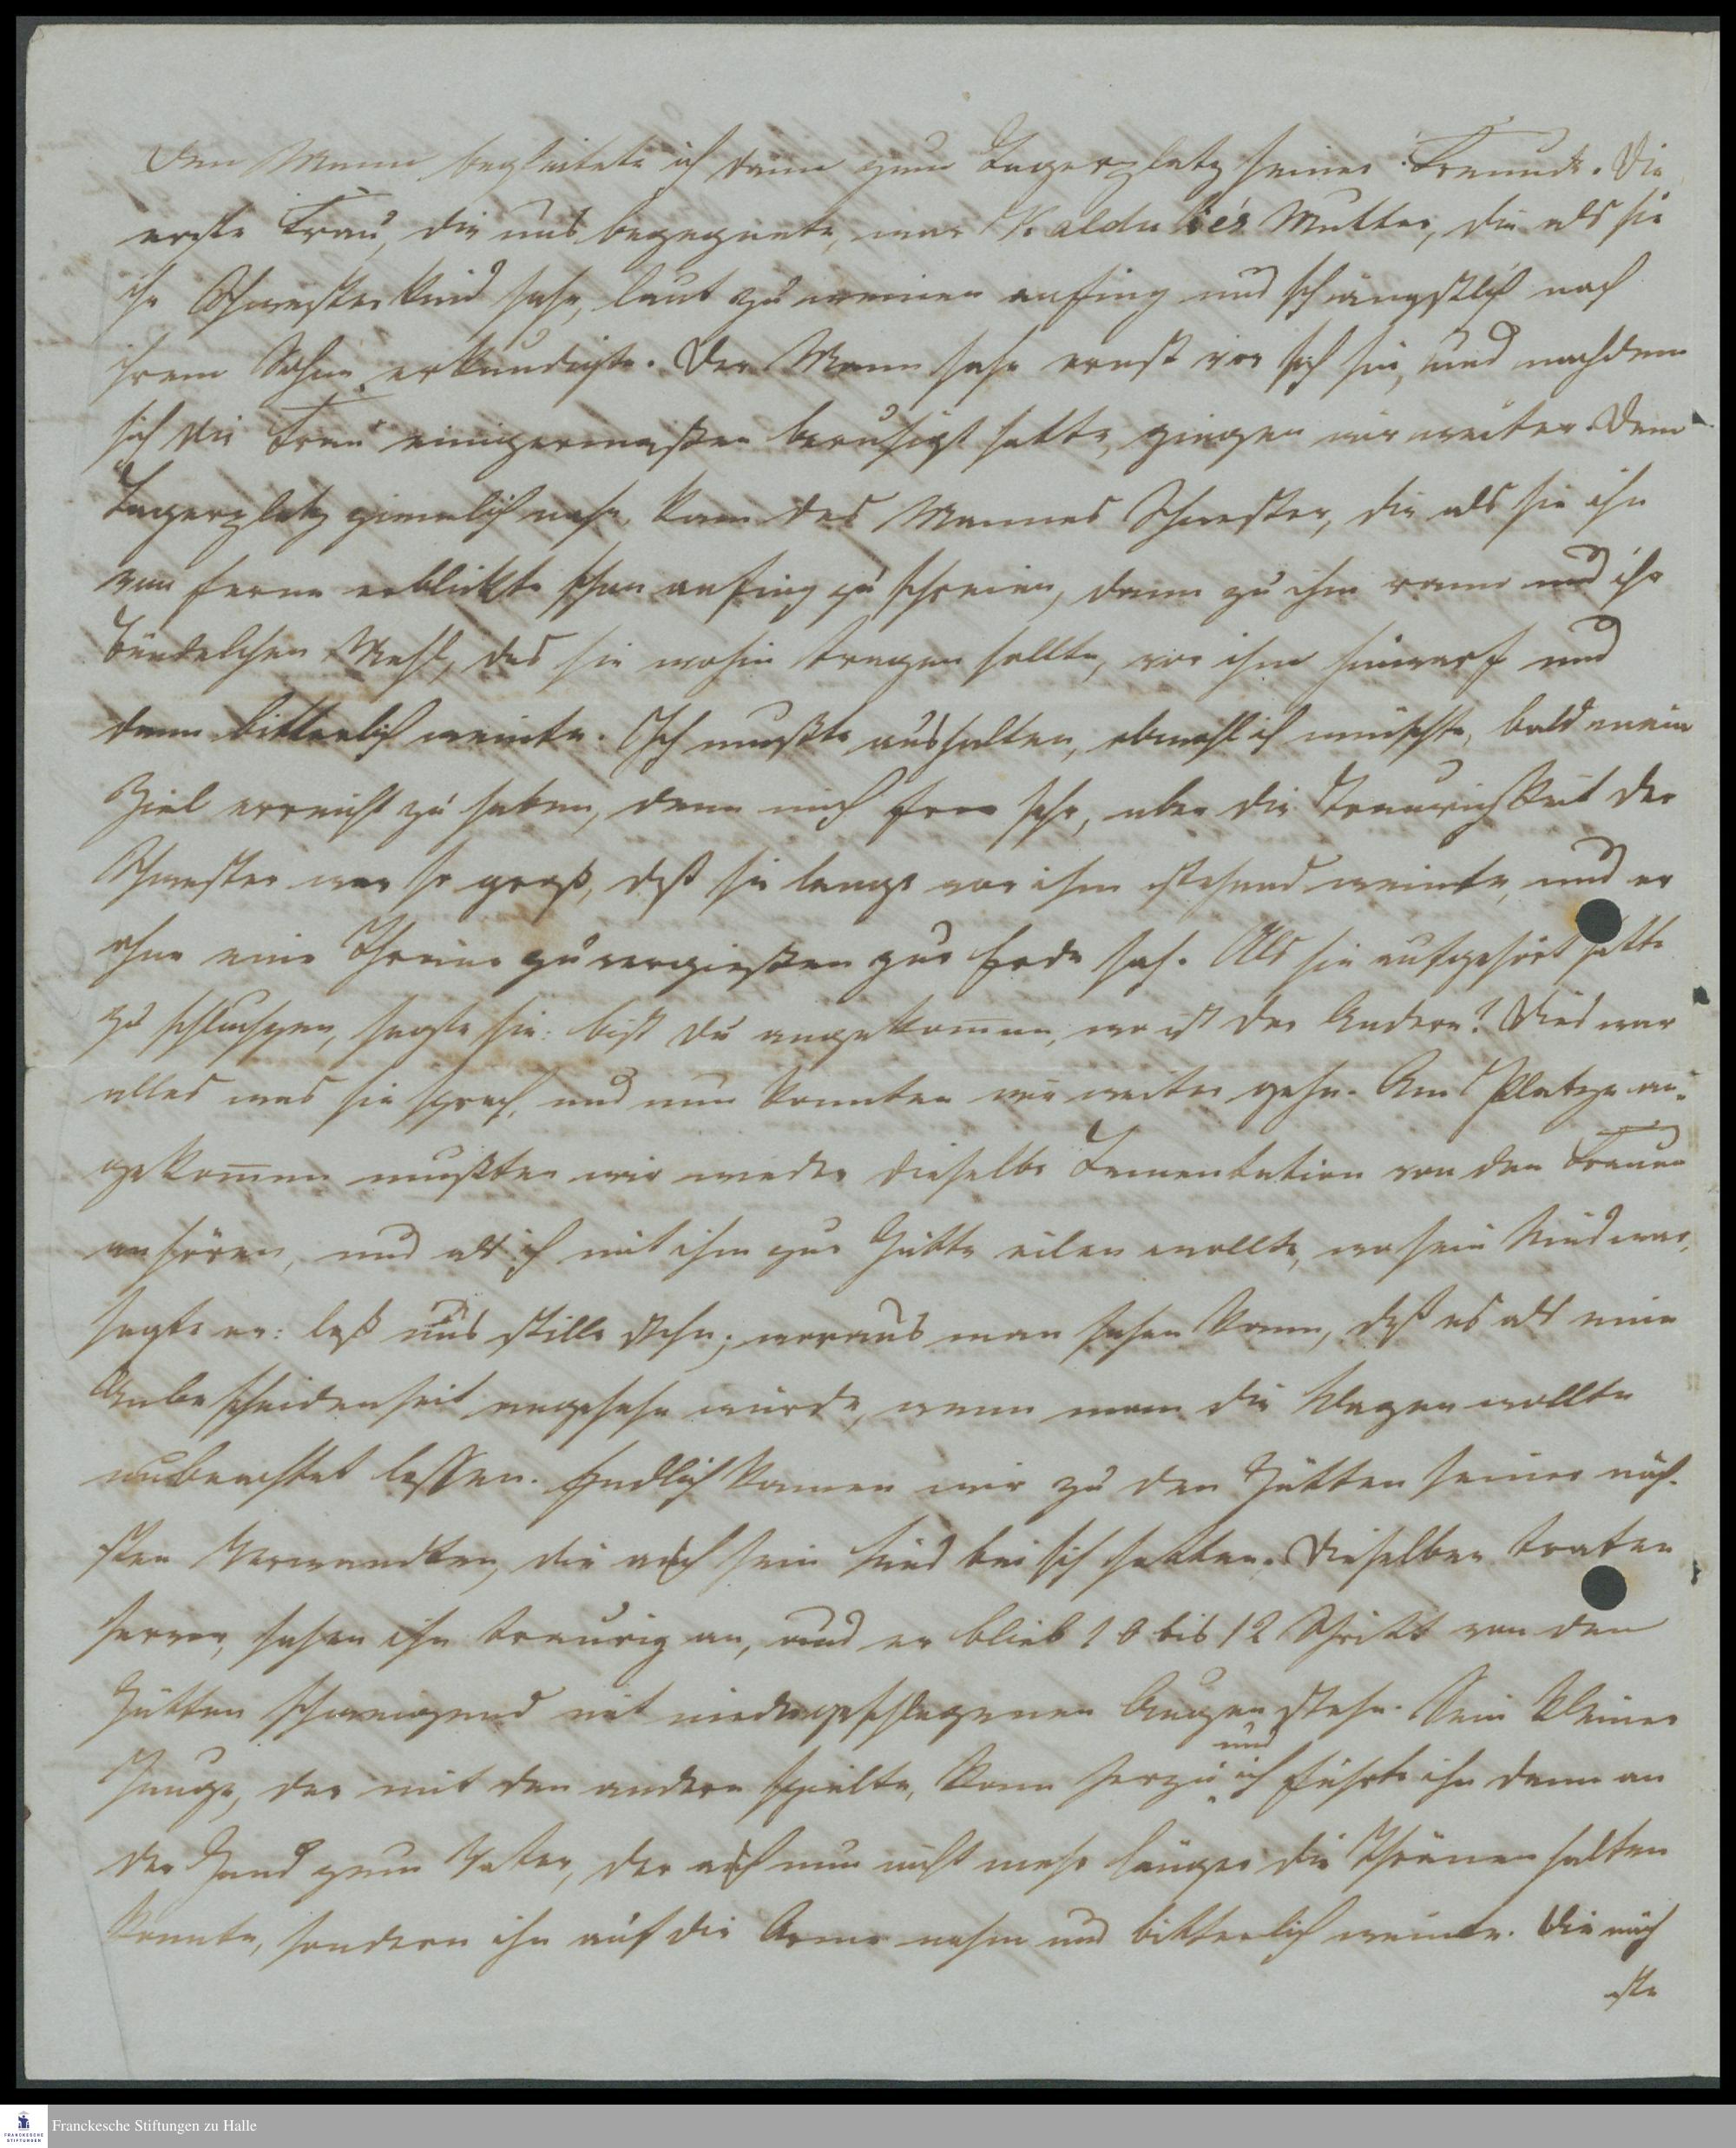 Den Mann begleitete ich dann zum Lagerplatz seiner Freunde. Die
erste Frau, die uns begegnete, war Kaldubie's Mutter, die als sie
ihr Schwesterkind sahe, laut zu weinen anfing und sich ängstlich nach
ihrem Sohne erkundigte. Der Mann sahe ernst vor sich hin, und nachdem
sich die Frau einigermaßen beruhigt hatte, gingen wir weiter. Dem
Lagerplatz ziemlich nahe, kam des Mannes Schwester, die als sie ihn
von ferne erblickte schon anfing zu schreien, dann zu ihm rann und ihr
Bündelchen Mehl, das sie wohin tragen sollte, vor ihm hinwarf und
dann bitterlich weinte. Ich mußte aushalten, obwohl ich wünschte, bald mein
Ziel erreicht zu haben, denn mich fror sehr, aber die Traurigkeit der
Schwester war so groß, daß sie lange vor ihm stehend weinte, und er
ohne eine Thräne zu vergießen zur Erde sah. Als sie aufgehört hatte
zu schluchzen, sagte sie: bist du angekom̅en, wo ist der Andere? Dies war
alles was sie sprach, und nun konnten wir weiter gehn. Am Platze an-
gekom̅en mußten wir wieder dieselbe Lamentation von den Frauen
anhören, und als ich mit ihm zur Hütte eilen wollte, wo sein Kind war,
sagte er: laß uns stille stehn; woraus man sehen kann, daß es als eine
Unbescheidenheit angesehn würde, wenn man die Klagen wollte
unbeachtet lassen. Endlich kamen wir zu den Hütten seiner näch-
sten Verwandten, die auch sein Kind bei sich hatten. Dieselben traten
hervor, sahen ihn traurig an, und er blieb 10 bis 12 Schritt von den
Hütten schweigend mit niedergeschlagenen Augen stehn. Sein kleiner
Junge, der mit den andern spielte, kam herzu und ich führte ihn dann an
der Hand zum Vater, der auch nun nicht mehr länger die Thränen halten
konnte, sondern ihn auf die Arme nahm und bitterlich weinte. Die näch
ste
Franckesche Stiftungen zu Halle
FRANCKESCHE
STIFTUNGEN